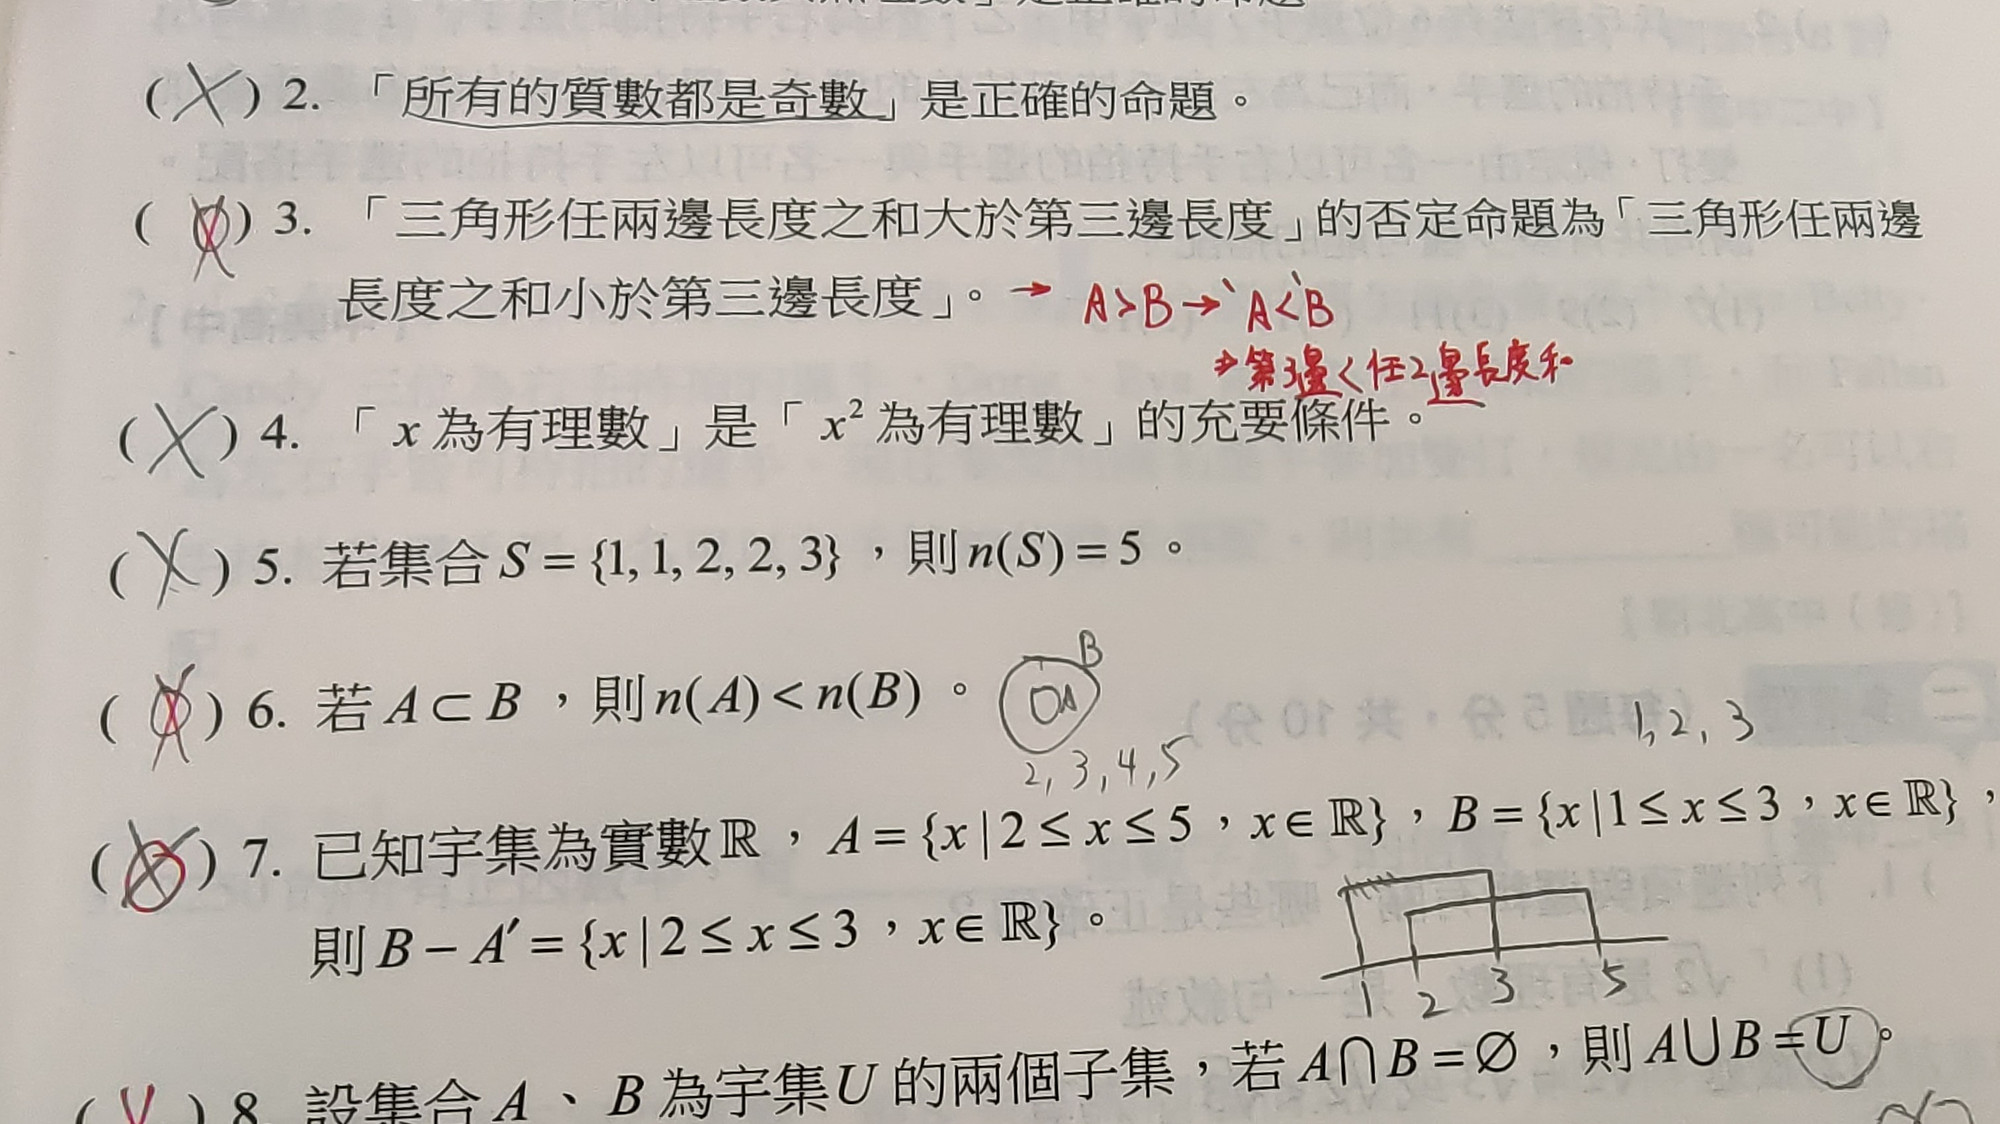 是正確的命題
(X) 2. 「所有的質數都是奇數」是正確的命題。
(X) 3. 「三角形任兩邊長度之和大於第三邊長度」的否定命題為「三角形任兩邊
長度之和小於第三邊長度」。→ A>B→A<B
→第3邊<任2邊長度和
(X) 4. 「x 為有理數」是「x² 為有理數」的充要條件。
(X) 5. 若集合 S = {1, 1, 2, 2, 3},則 n(S) = 5。
(X) 6. 若 A ⊂ B ,則 n(A) < n(B)。 A B
2, 3, 4, 5 1, 2, 3
(O) 7. 已知宇集為實數 ℝ,A = {x | 2 ≤ x ≤ 5,x ∈ ℝ},B = {x | 1 ≤ x ≤ 3,x ∈ ℝ},
則 B − A′ = {x | 2 ≤ x ≤ 3,x ∈ ℝ}。
1 2 3 5
( ) 8. 設集合 A、B 為宇集 U 的兩個子集,若 A ∩ B = ∅,則 A ∪ B = U。